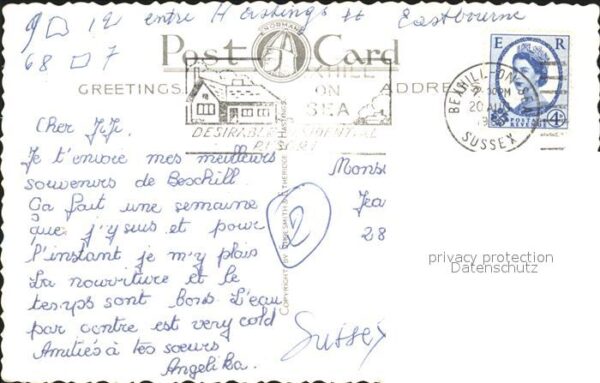 12 entre Hastings et Eastbourne
68 7
Post Card
NORMAN
GREETINGS
ADDRESS
BEXHILL
ON
SEA
DESIRABLE RESIDENTIAL
RESORT
E R
POSTAGE
REVENUE
4D
BEXHILL-ON-SEA
20 AUG
SUSSEX
Cher JiJi.
Je t'envoie mes meilleurs
souvenirs de Bexhill
Ca fait une semaine
que j'y suis et pour
l'instant je m'y plais
La nourriture et le
temps sont bons L'eau
par contre est very cold
Amitiés à tes soeurs
Angelika.
COPYRIGHT BY HASTINGS
2
Mons
Jea
28
Sussex
privacy protection
Datenschutz